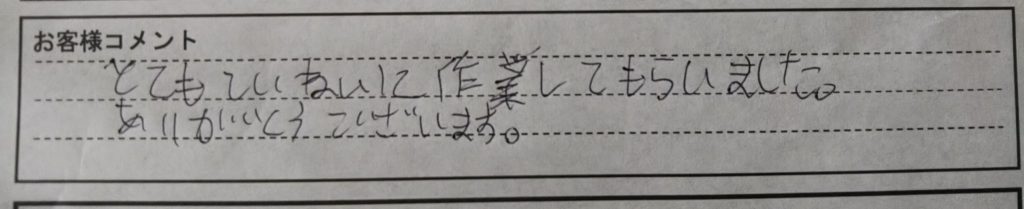 お客様コメント
とてもていねいに作業してもらいました。
ありがとうございます。